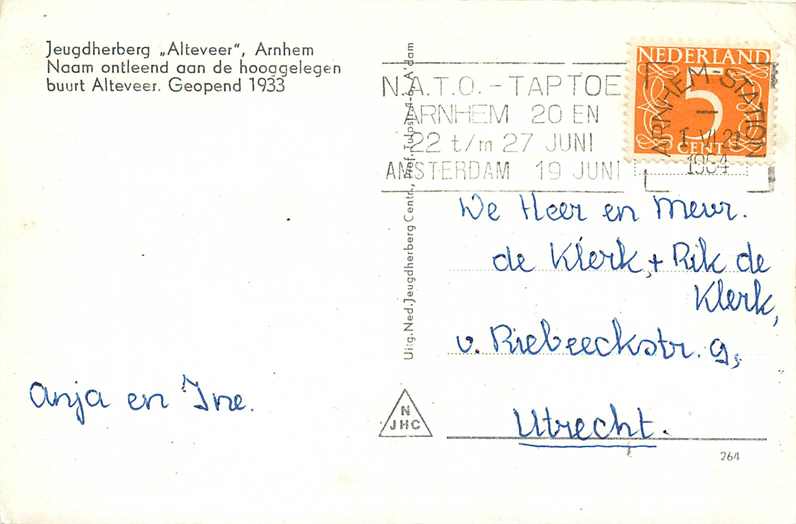 Jeugdherberg „Alteveer”, Arnhem
Naam ontleend aan de hooggelegen
buurt Alteveer. Geopend 1933
N.A.T.O. - TAPTOE
ARNHEM 20 EN
22 t/m 27 JUNI
AMSTERDAM 19 JUNI
NEDERLAND
5
CENT
ARNHEM-STATION
VI.21
1954
Uitg. Ned. Jeugdherberg Centr., Prof. Tulpstr. A'dam
De Heer en Mevr.
de Klerk, + Rik de
Klerk,
v. Riebeeckstr. 9,
Utrecht.
Anja en Ine.
N
JHC
264